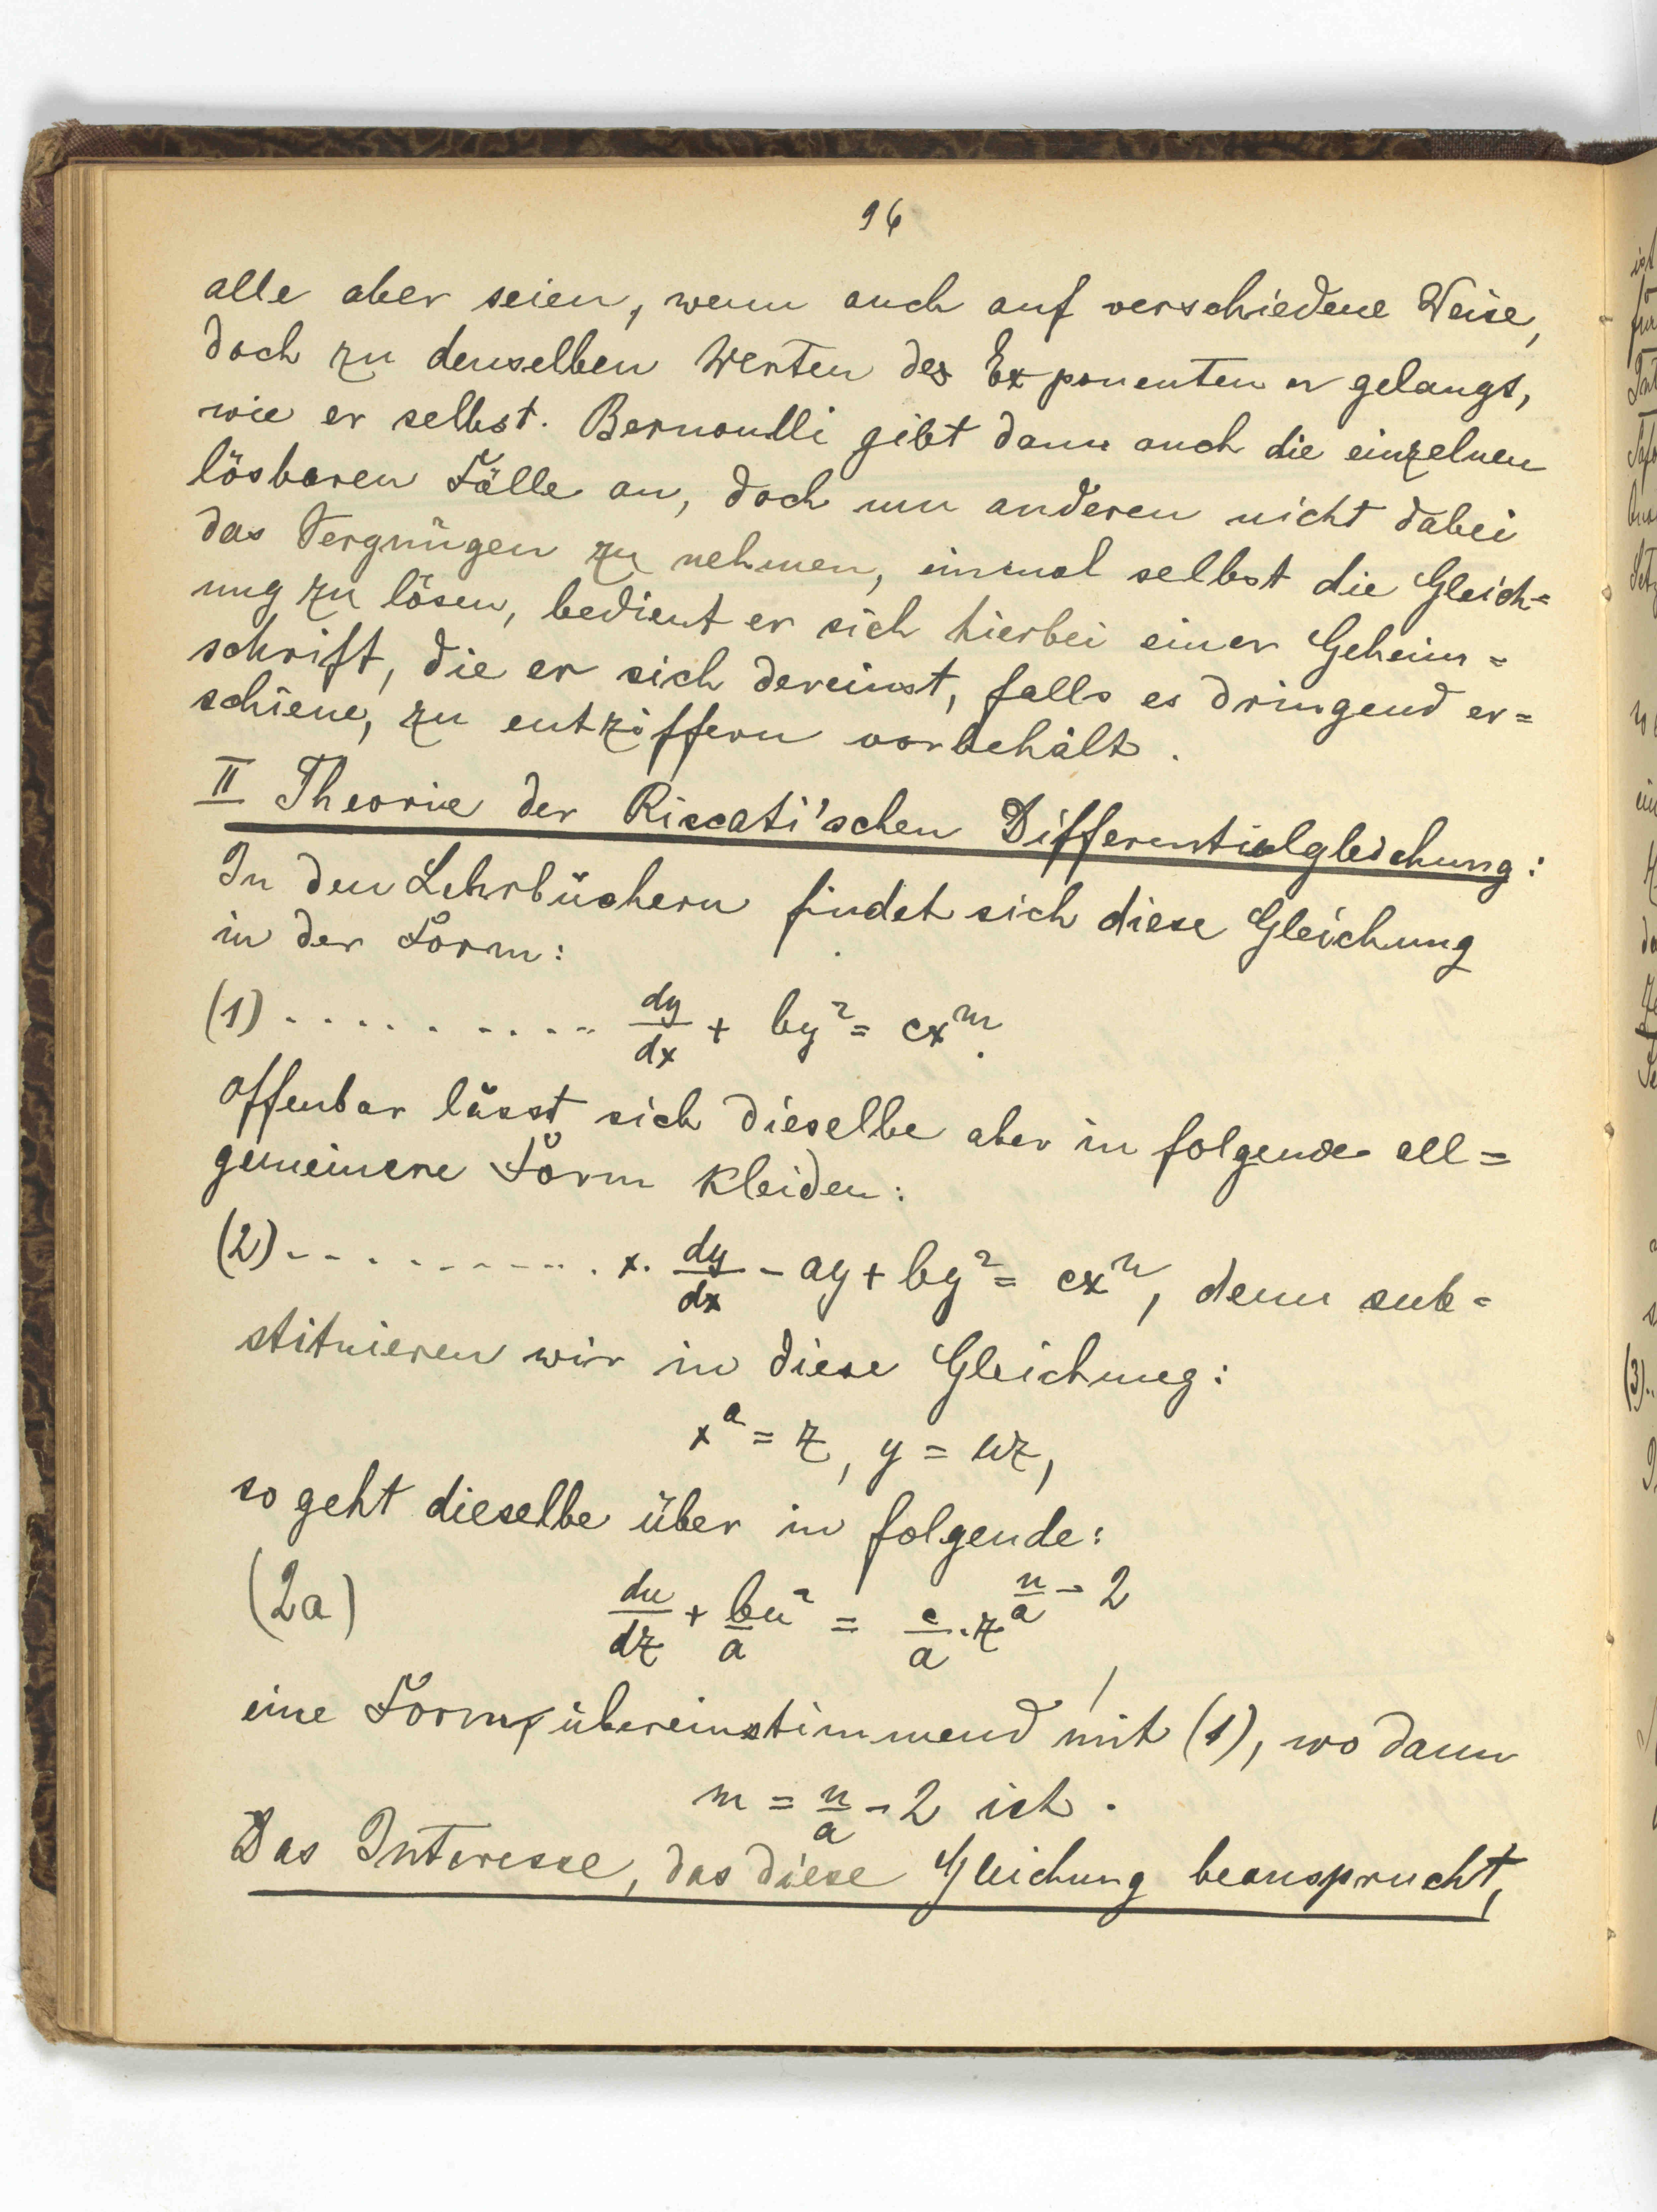 96
alle aber seien, wenn auch auf verschiedene Weise,
doch zu denselben Werten des Exponenten n gelangt,
wie er selbst. Bernoulli gibt dann auch die einzelnen
lösbaren Fälle an, doch um anderen nicht dabei
das Vergnügen zu nehmen, einmal selbst die Gleich=
ung zu lösen, bedient er sich hierbei einer Geheim=
schrift, die er sich dereinst, falls es dringend er=
schiene, zu entziffern vorbehält.
II Theorie der Riccati'schen Differentialgleichung:
In den Lehrbüchern findet sich diese Gleichung
in der Form:
(1) . . . . . . . . . . . dy/dx + by² = cx^m.
Offenbar lässt sich dieselbe aber in folgende all=
gemeinere Form kleiden:
(2) . . . . . . . . . . . x. dy/dx - ay + by² = cx^n, denn sub=
stituieren wir in diese Gleichung:
x^a = z, y = uz,
so geht dieselbe über in folgende:
(2a) du/dz + b/a u² = c/a . z^(n/a - 2)
eine Form, übereinstimmend mit (1), wo dann
m = n/a - 2 ist.
Das Interesse, das diese Gleichung beansprucht,